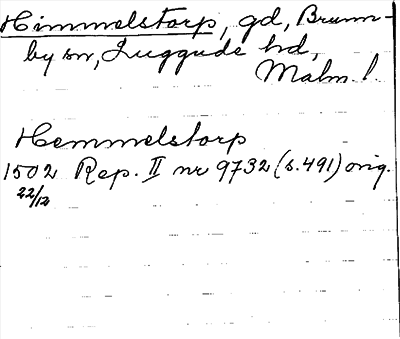 Himmelstorp, gd, Brunn-
by sn, Luggude hd,
Malm. l.
Hemmelstorp
1502 Rep. II nr 9732 (s. 491) orig.
22/12